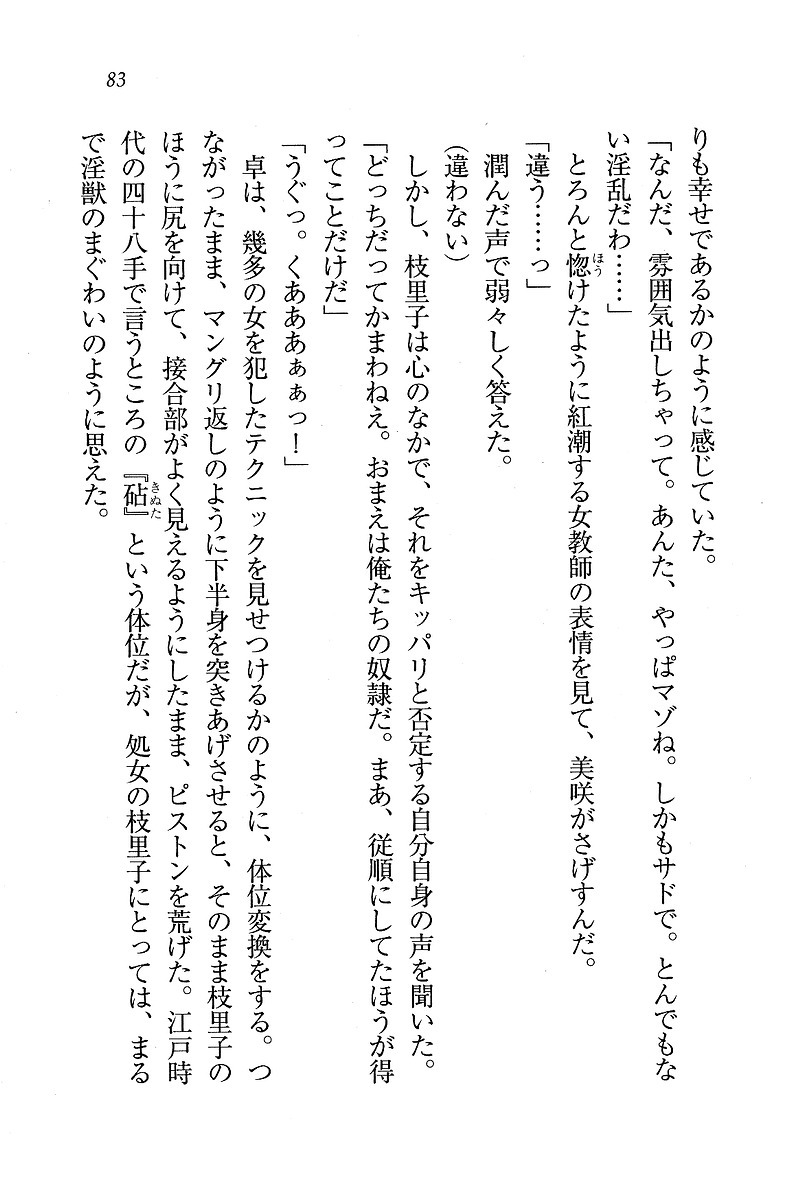 83
りも幸せであるかのように感じていた。
「なんだ、雰囲気出しちゃって。あんた、やっぱマゾね。しかもサドで。とんでもな
い淫乱だわ……」
とろんと惚けたように紅潮する女教師の表情を見て、美咲がさげすんだ。
ほう
「違う……っ」
潤んだ声で弱々しく答えた。
(違わない)
しかし、枝里子は心のなかで、それをキッパリと否定する自分自身の声を聞いた。
「どっちだってかまわねえ。おまえは俺たちの奴隷だ。まあ、従順にしてたほうが得
ってことだけだ」
「うぐっ。くあああぁぁっ!」
卓は、幾多の女を犯したテクニックを見せつけるかのように、体位変換をする。つ
ながったまま、マングリ返しのように下半身を突きあげさせると、そのまま枝里子の
ほうに尻を向けて、接合部がよく見えるようにしたまま、ピストンを荒げた。江戸時
代の四十八手で言うところの『砧』という体位だが、処女の枝里子にとっては、まる
きぬた
で淫獣のまぐわいのように思えた。